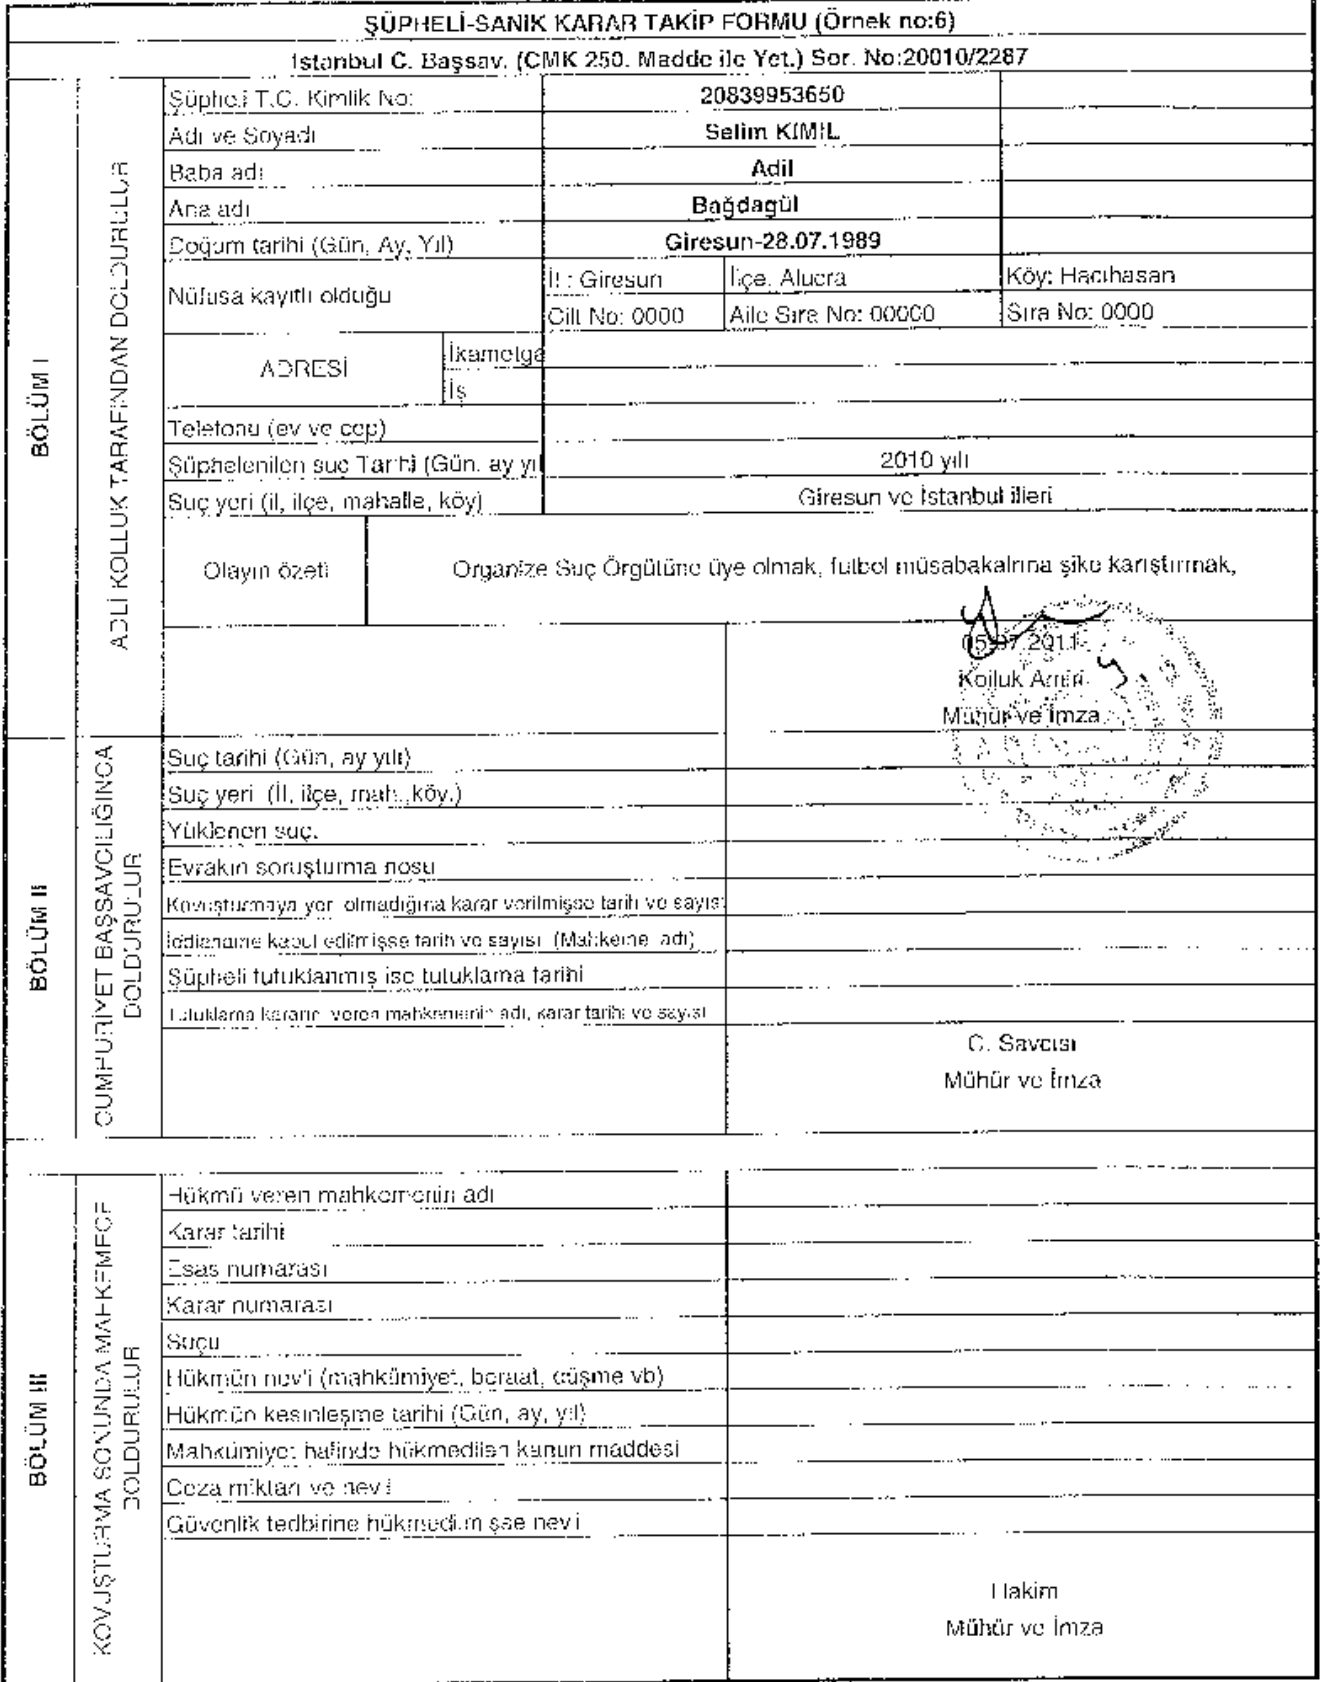 ŞÜPHELİ-SANIK KARAR TAKİP FORMU (Örnek no:6)
İstanbul C. Başsav. (CMK 250. Madde ile Yet.) Sor. No:20010/2287
BÖLÜM I
ADLİ KOLLUK TARAFINDAN DOLDURULUR
Şüpheli T.C. Kimlik No: 20839953650
Adı ve Soyadı Selim KIMIL
Baba adı Adil
Ana adı Bağdagül
Doğum tarihi (Gün, Ay, Yıl) Giresun-28.07.1989
Nüfusa kayıtlı olduğu
İl : Giresun İlçe: Alucra Köy: Hacıhasan
Cilt No: 0000 Aile Sıra No: 00000 Sıra No: 0000
ADRESİ
İkametga
İş
Telefonu (ev ve cep)
Şüphelenilen suç Tarihi (Gün, ay yıl 2010 yılı
Suç yeri (il, ilçe, mahalle, köy) Giresun ve İstanbul illeri
Olayın özeti Organize Suç Örgütüne üye olmak, futbol müsabakalrına şike karıştırmak,
05.07.2011
Kolluk Amiri
Mühür ve İmza
BÖLÜM II
CUMHURİYET BAŞSAVCILIĞINCA
DOLDURULUR
Suç tarihi (Gün, ay yılı)
Suç yeri (İl, ilçe, mah.,köy.)
Yüklenen suç.
Evrakın soruşturma nosu
Kovuşturmaya yer olmadığına karar verilmişse tarih ve sayısı
İddianame kabul edilmişse tarih ve sayısı (Mahkeme adı)
Şüpheli tutuklanmış ise tutuklama tarihi
Tutuklama kararını veren mahkemenin adı, karar tarihi ve sayısı
C. Savcısı
Mühür ve İmza
BÖLÜM III
KOVUŞTURMA SONUNDA MAHKEMECE
DOLDURULUR
Hükmü veren mahkemenin adı
Karar tarihi
Esas numarası
Karar numarası
Suçu
Hükmün nev'i (mahkümiyet, beraat, düşme vb)
Hükmün kesinleşme tarihi (Gün, ay, yıl)
Mahkümiyet halinde hükmedilen kanun maddesi
Ceza miktarı ve nev'i
Güvenlik tedbirine hükmedilmişse nev'i
Hakim
Mühür ve İmza